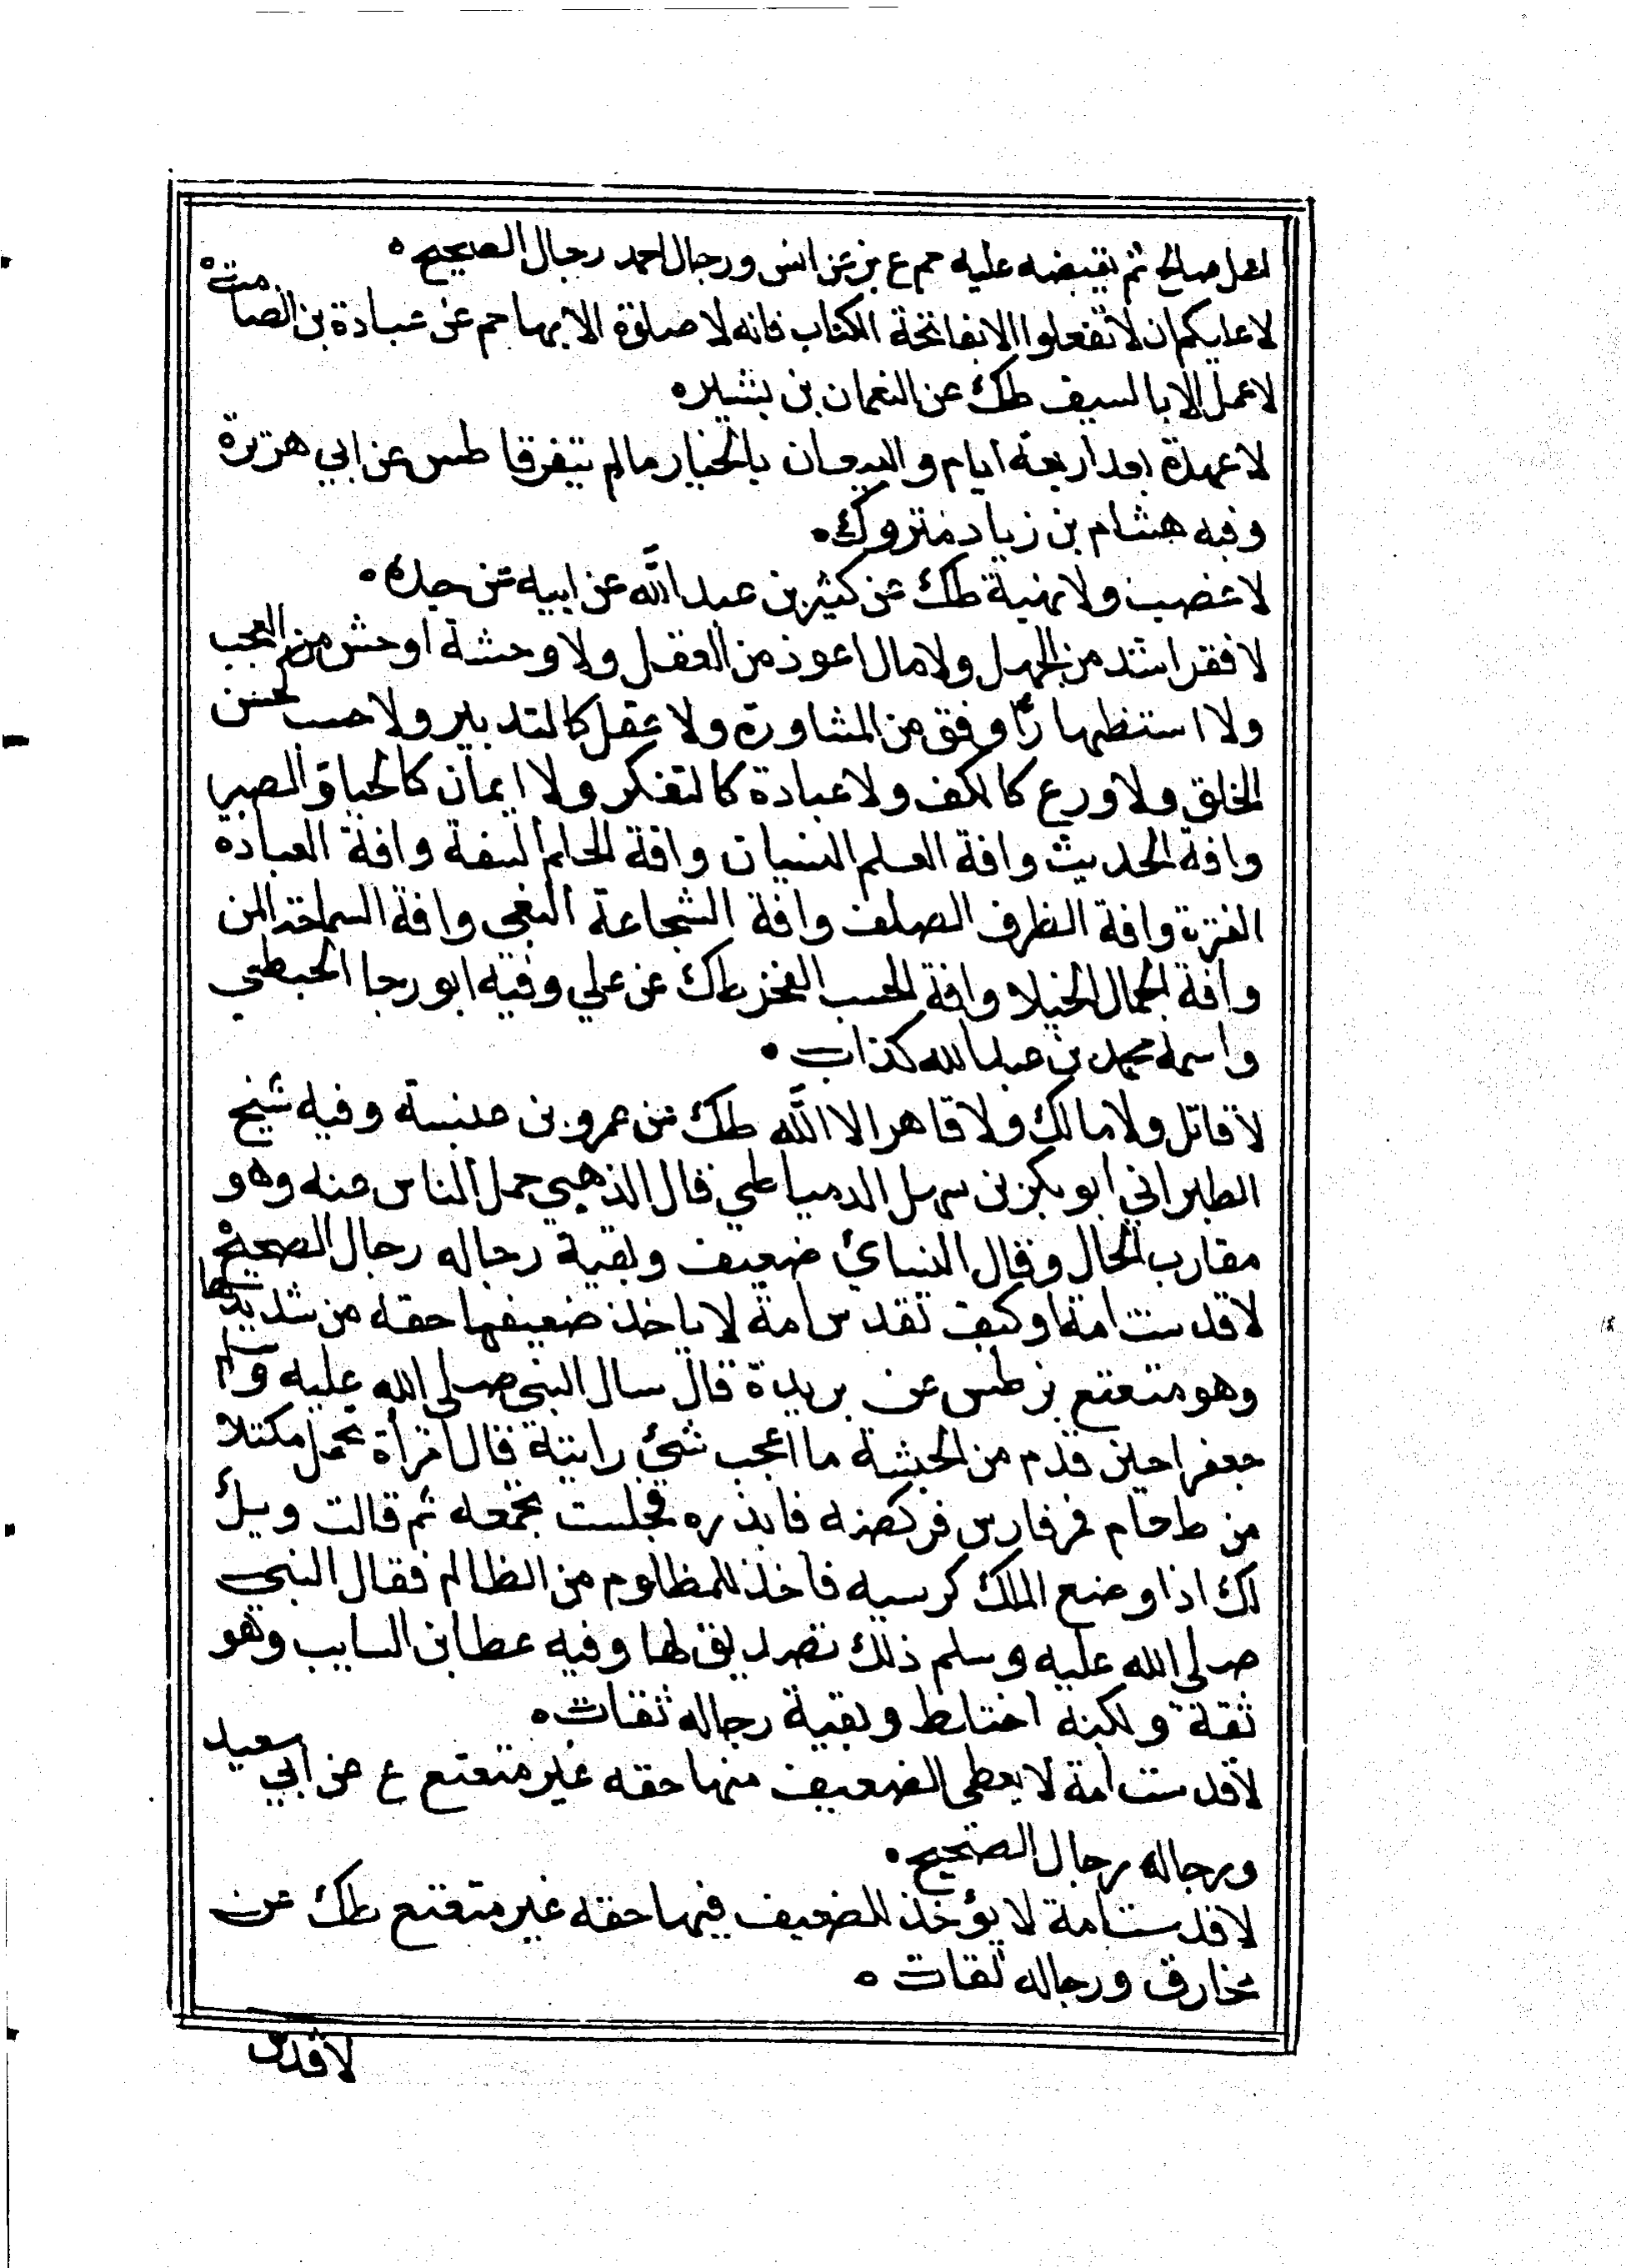 لعمل صالح ثم يقبضه عليه حم ع بز عن انس ورجال احمد رجال الصحيح ه
لا عليكم ان لا تفعلوا الا بفاتحة الكتاب فانه لا صلوة الا بها حم عن عبادة بن الصامت ه
لا عمل الا بالسيف طك عن النعمان بن بشير ه
لا عهدة بعد اربعة ايام والبيعان بالخيار مالم يتفرقا طس عن ابي هريرة
وفيه هشام بن زياد متروك ه
لا غصب ولا نهبة طك عن كثير بن عبد الله عن ابيه عن جده ه
لا فقر اشد من الجهل ولا مال اعوذ من العقل ولا وحشة اوحش من العجب
ولا استظهار اوفق من المشاورة ولا عقل كالتدبير ولا حسب كحسن
الخلق ولا ورع كالكف ولا عبادة كالتفكر ولا ايمان كالحيا والصبر
وافة الحديث وافة العلم النسيان وافة الحلم السفه وافة العباده
الفترة وافة الظرف الصلف وافة الشجاعة البغي وافة السماحة المن
وافة الجمال الخيلا وافة الحسب الفخر طك عن علي وفيه ابو رجا الحبطي
واسمه محمد بن عبد الله كذاب ه
لا قاتل ولا مالك ولا قاهر الا الله طك عن عمرو بن عنبسة وفيه شيخ
الطبراني ابو بكر بن سهل الدمياطي قال الذهبي حمل الناس عنه وهو
مقارب الحال وقال النسائ ضعيف وبقية رجاله رجال الصحيح ه
لا قدست امة او كيف تقدس امة لا ياخذ ضعيفها حقه من شديدها
وهو متعتع بز طس عن بريدة قال سال النبي صلى الله عليه وسلم
جعفرا حين قدم من الحبشة ما اعجب شئ رايته قال امرأة تحمل مكتلا
من طعام فمر فارس فركضه فابذره فجلست تجمعه ثم قالت ويل
لك اذا وضع الملك كرسيه فاخذ للمظلوم من الظالم فقال النبي
صلى الله عليه وسلم ذلك تصديق لها وفيه عطا بن السايب وهو
ثقة ولكنه اختلط وبقية رجاله ثقات ه
لا قدست امة لا يعطى الضعيف منها حقه غير متعتع ع عن ابي سعيد
ورجاله رجال الصحيح ه
لا قدست امة لا يؤخذ للضعيف فيها حقه غير متعتع طك عن
مخارق ورجاله ثقات ه
لا قدس